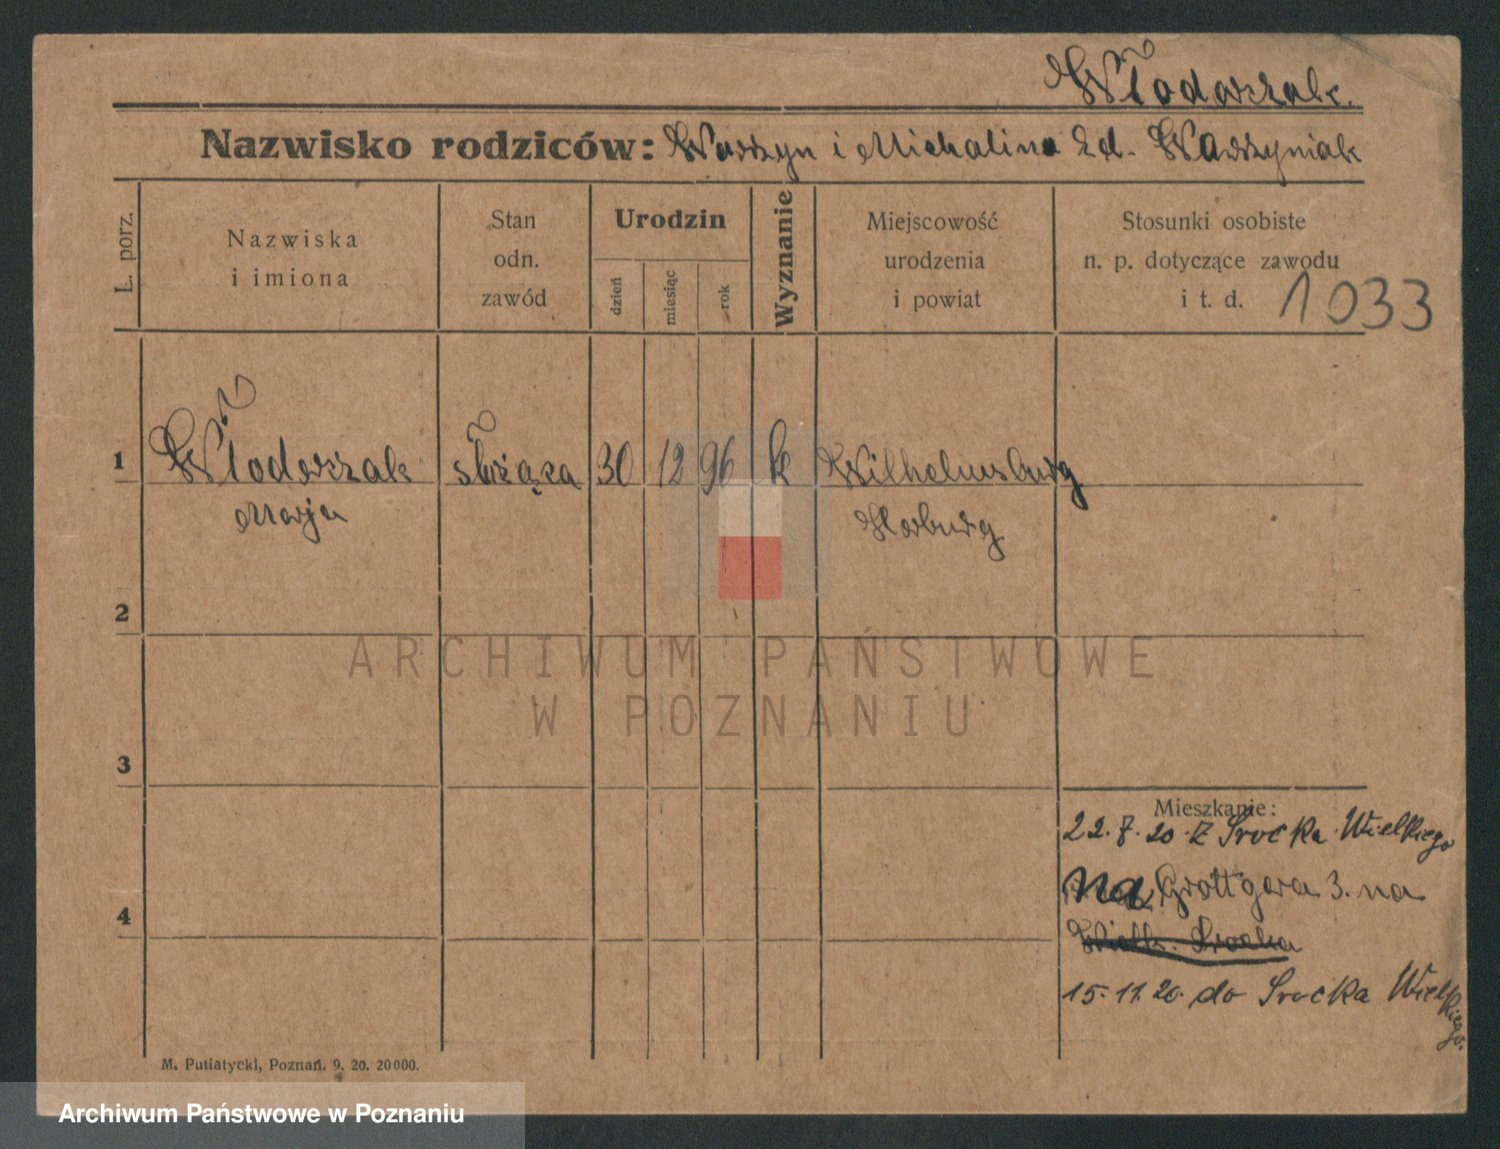 Włodarczak.
Nazwisko rodziców: Wawrzyn i Michalina zd. Wawrzyniak
L. porz.
Nazwiska i imiona
Stan odn. zawód
Urodzin
dzień
miesiąc
rok
Wyznanie
Miejscowość urodzenia i powiat
Stosunki osobiste n. p. dotyczące zawodu i t. d.
1033
1 Włodarczak służąca 30 12 96 k Wilhelmsburg
Marja Harburg
2
ARCHIWUM PAŃSTWOWE
W POZNANIU
3
Mieszkanie:
22.7.20. Z Srocka Wielkiego
na Grottgera 3. na
4
Wielk. Srocka
15.11.20. do Srocka Wielkiego.
M. Putiatycki, Poznań. 9. 20. 20000.
Archiwum Państwowe w Poznaniu